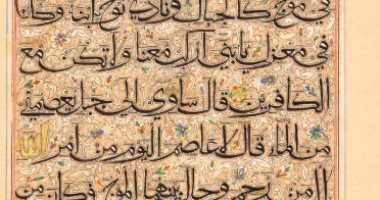 في موج كالجبال ونادى نوح ابنه وكان
في معزل يا بني اركب معنا ولا تكن مع
الكافرين قال ساوي الى جبل يعصمني
من الماء قال لا عاصم اليوم من امر الله
الا من رحم وحال بينهما الموج فكان من